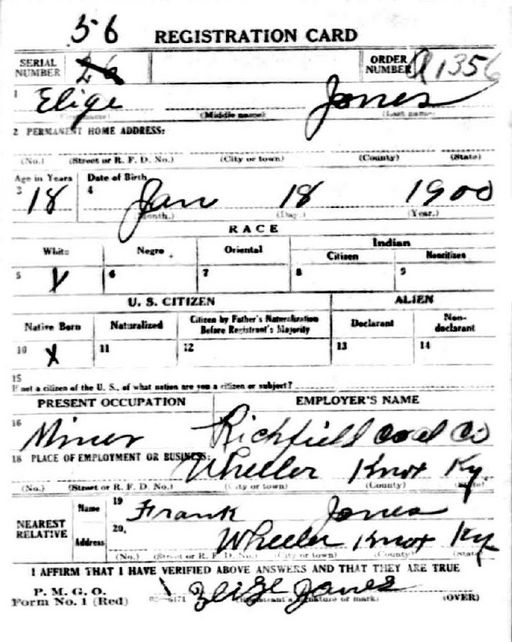 56 REGISTRATION CARD
SERIAL NUMBER 26 ORDER NUMBER A 1356
1 Elige Jones
(First name) (Middle name) (Last name)
2 PERMANENT HOME ADDRESS:
(No.) (Street or R. F. D. No.) (City or town) (County) (State)
Age in Years Date of Birth
3 18 4 Jan 18 1900
(Month.) (Day.) (Year.)
RACE
White Negro Oriental Indian
Citizen Noncitizen
5 V 6 7 8 9
U. S. CITIZEN ALIEN
Native Born Naturalized Citizen by Father's Naturalization Before Registrant's Majority Declarant Non-declarant
10 X 11 12 13 14
15
If not a citizen of the U. S., of what nation are you a citizen or subject?
PRESENT OCCUPATION EMPLOYER'S NAME
16 Miner Richfield Coal Co
18 PLACE OF EMPLOYMENT OR BUSINESS:
Wheeler Knox Ky.
(No.) (Street or R. F. D. No.) (City or town) (County) (State)
NEAREST RELATIVE
Name 19 Frank Jones
Address 20 Wheeler Knox Ky
(No.) (Street or R. F. D. No.) (City or town) (County) (State)
I AFFIRM THAT I HAVE VERIFIED ABOVE ANSWERS AND THAT THEY ARE TRUE
P. M. G. O.
Form No. 1 (Red) Elige Jones
(Registrant's signature or mark) (OVER)